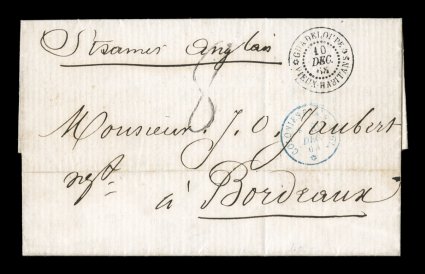 Steamer Anglais
GUADELOUPE
10
DEC.
68
VIEUX-HABITANTS
8
Monsieur J. O. Jaubert
DEC
negt
à Bordeaux